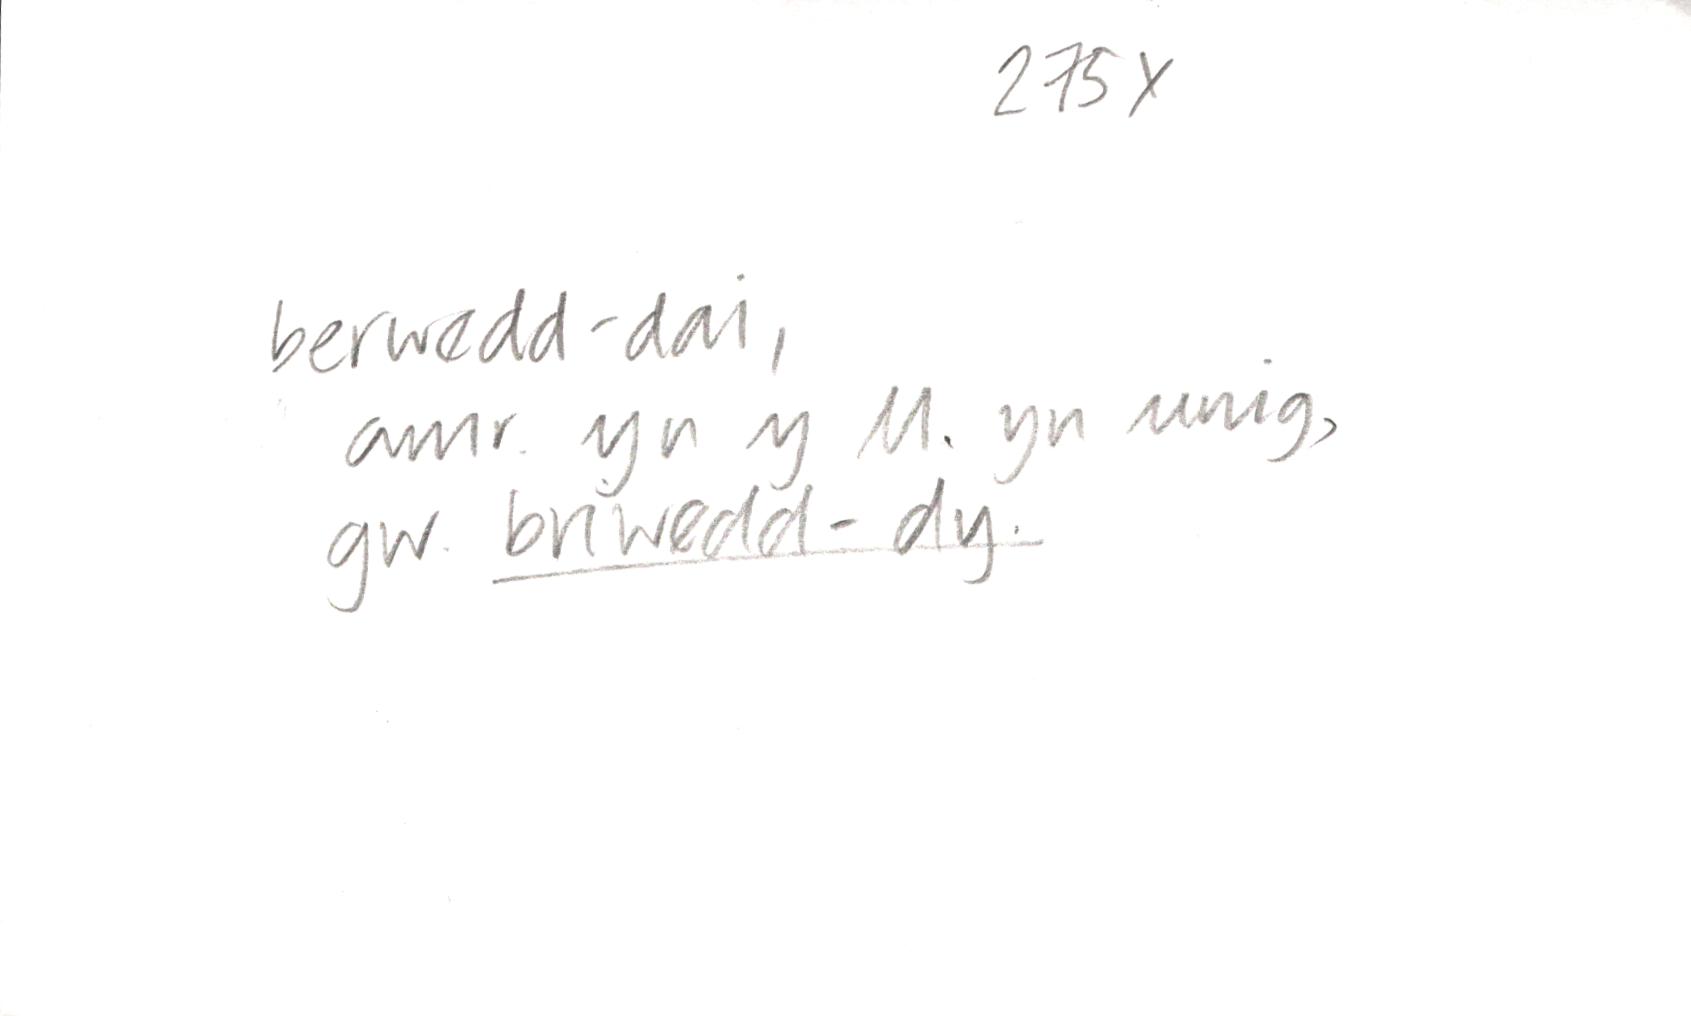 275X
berwedd-dai,
amr. yn y ll. yn unig,
gw. briwedd-dy.